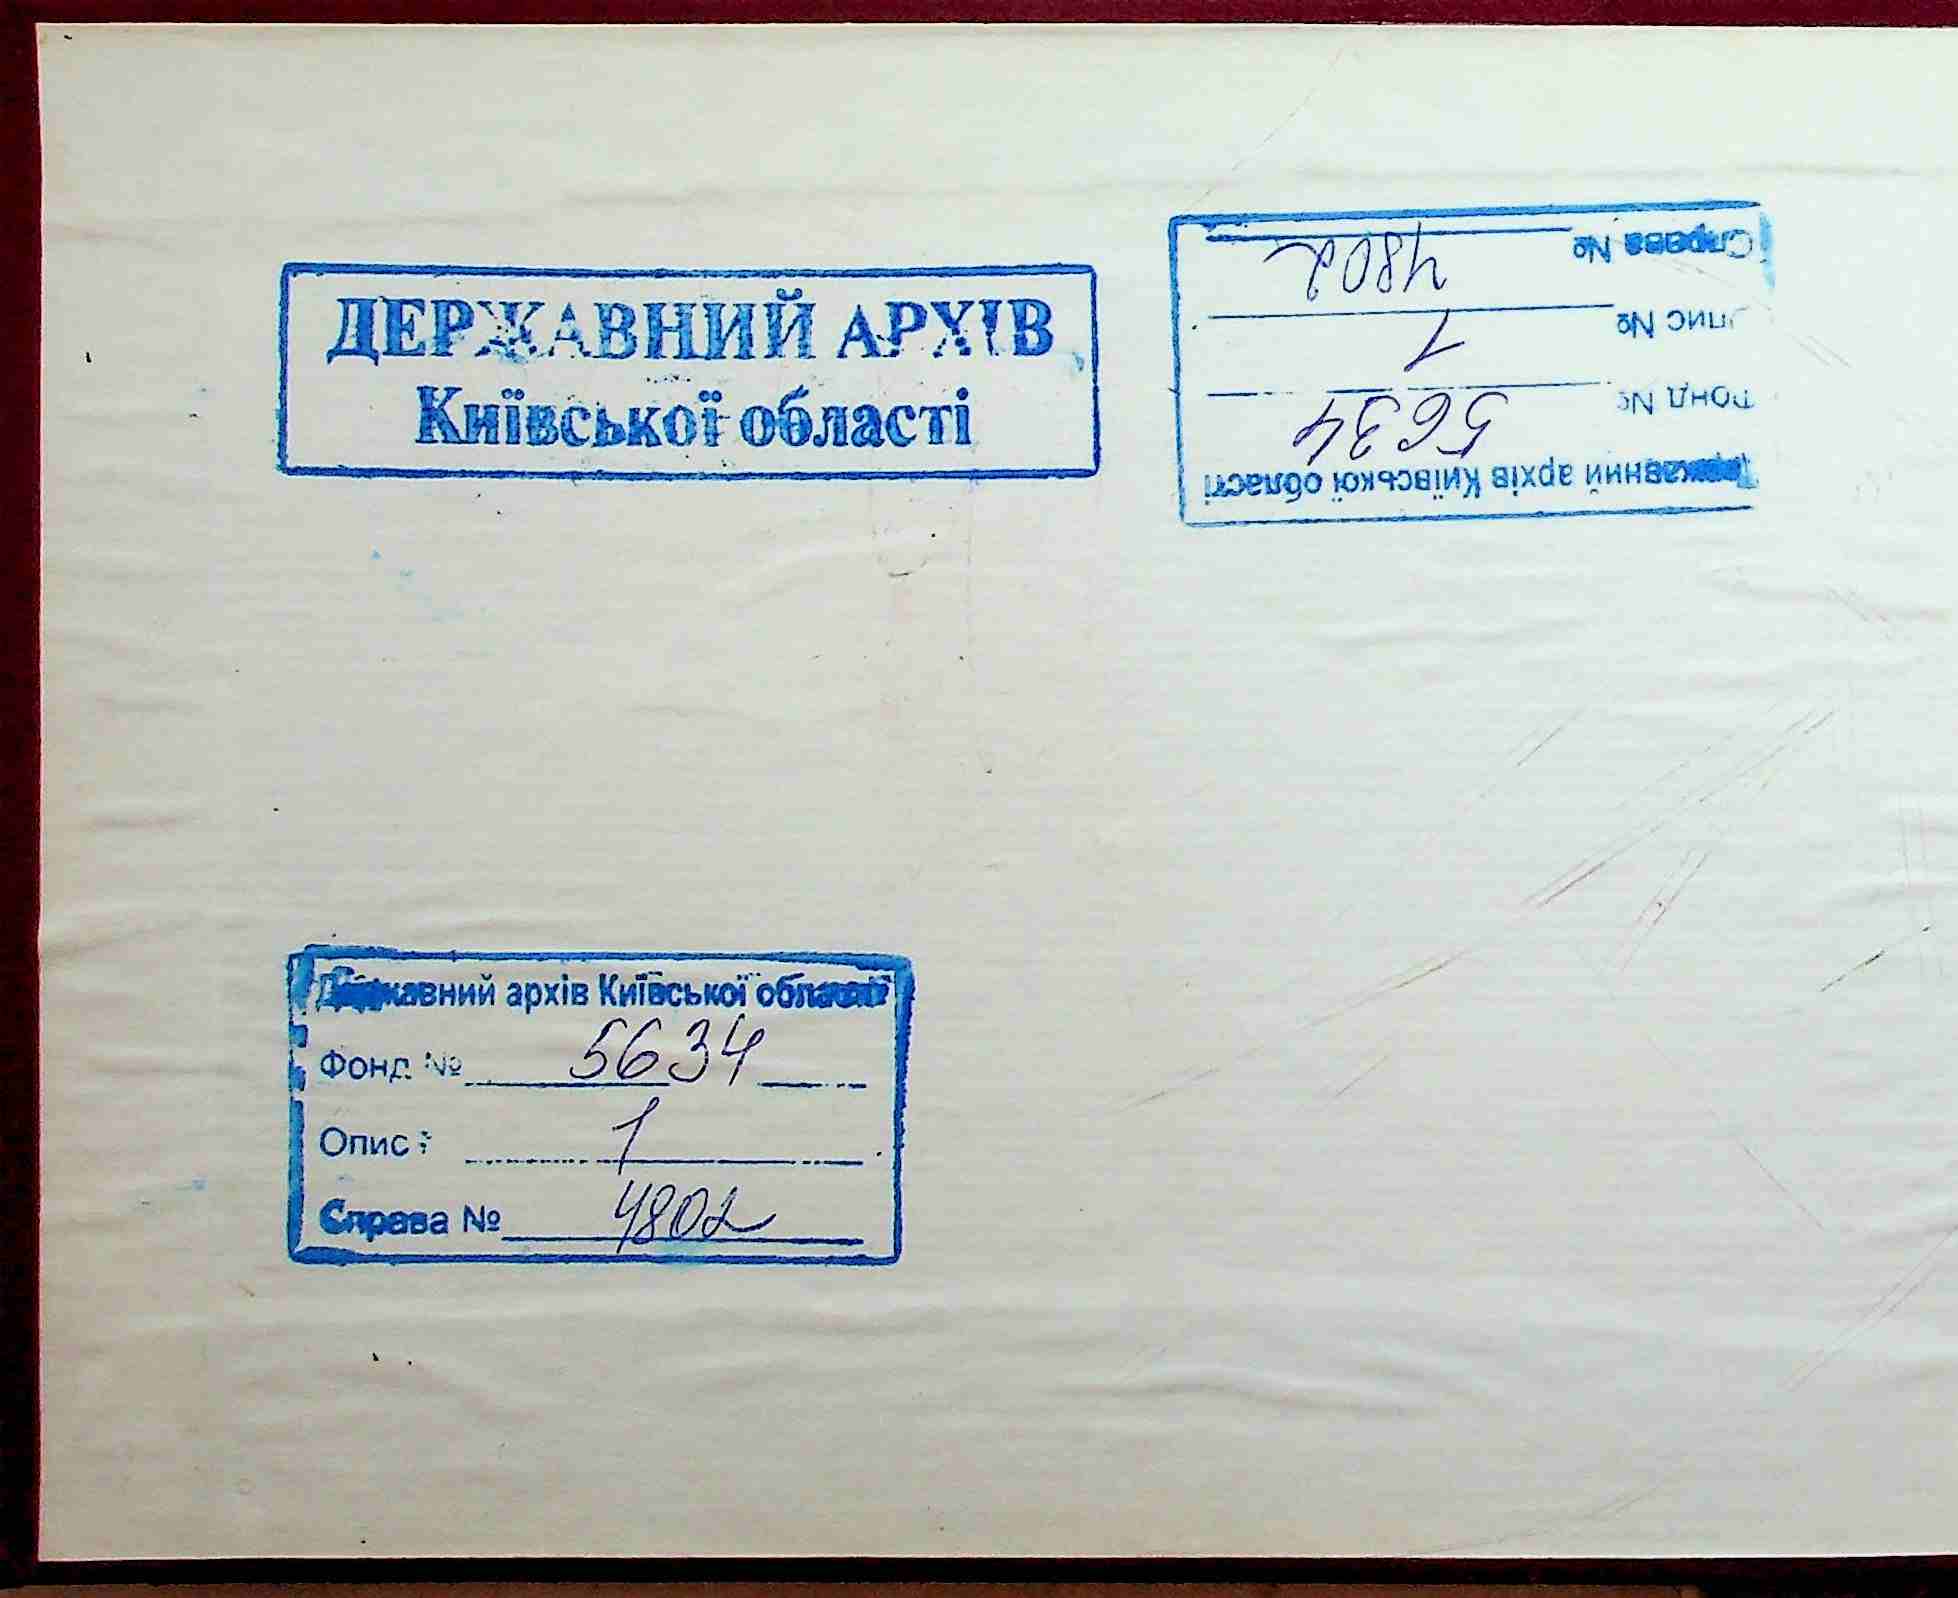 ДЕРЖАВНИЙ АРХІВ
Київської області
Державний архів Київської області
Фонд № 5634
Опис № 1
Справа № 4802
Державний архів Київської області
Фонд № 5634
Опис 1
Справа № 4802